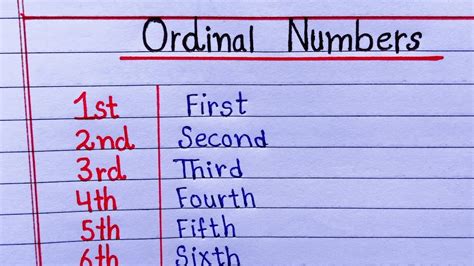 Ordinal Numbers
1st First
2nd Second
3rd Third
4th Fourth
5th Fifth
6th Sixth